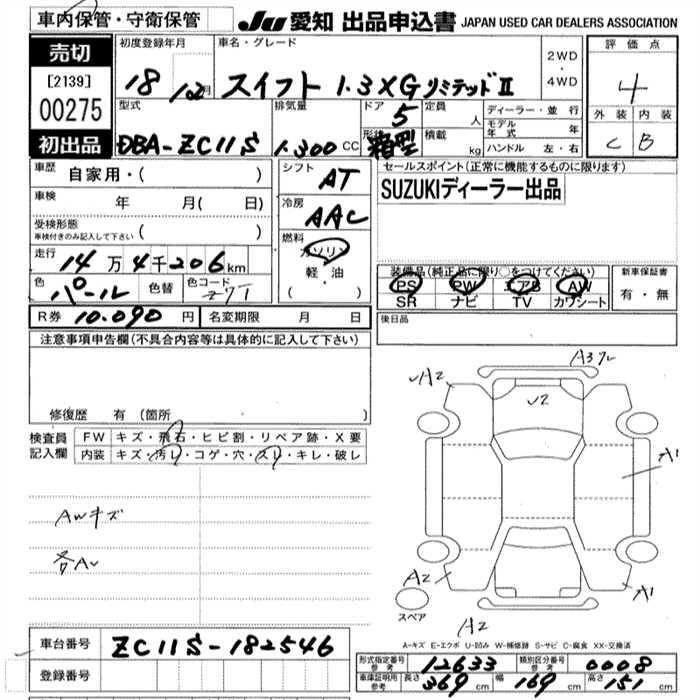 車内保管・守衛保管
JU 愛知 出品申込書 JAPAN USED CAR DEALERS ASSOCIATION
売切
[2139]
00275
初出品
初度登録年月 車名・グレード
18 12月 スイフト 1.3XGリミテッドⅡ
2WD
・
4WD
評価点
4
外装 内装
C B
型式 排気量 ドア 定員 ディーラー・並行
DBA-ZC11S 1.300CC 5 人
形状 箱型 積載 kg
モデル年式 年
ハンドル 左・右
車歴 自家用・( )
車検 年 月( 日)
受検形態
車検付きのみ記入して下さい ( )
走行 14万4千206km
色 パール 色替 色コード Z7T
シフト AT
冷房 AAC
燃料
ガソリン
軽・油
( )
セールスポイント(正常に機能するものに限ります)
SUZUKIディーラー出品
装備品(純正品に限り○をつけてください)
PS PW エアB AW
SR ナビ TV カワシート
新車保証書
有・無
R券 10.090円 名変期限 月 日
後日品
注意事項申告欄(不具合内容等は具体的に記入して下さい)
修復歴 有 (箇所 )
検査員記入欄
FW キズ・飛石・ヒビ割・リペア跡・X要
内装 キズ・汚レ・コゲ・穴・スレ・キレ・破レ
AWキズ
各AU
A3
A2
U2
A1
A2
A1
A2
スペア
A-キズ E-エクボ U-凹み W-補修跡 S-サビ C-腐食 XX-交換済
車台番号 ZC11S-182546
登録番号
形式指定番号 参考 12633 類別区分番号 参考 0008
車庫証明用 参考 長さ 369cm 幅 169cm 高さ 151cm